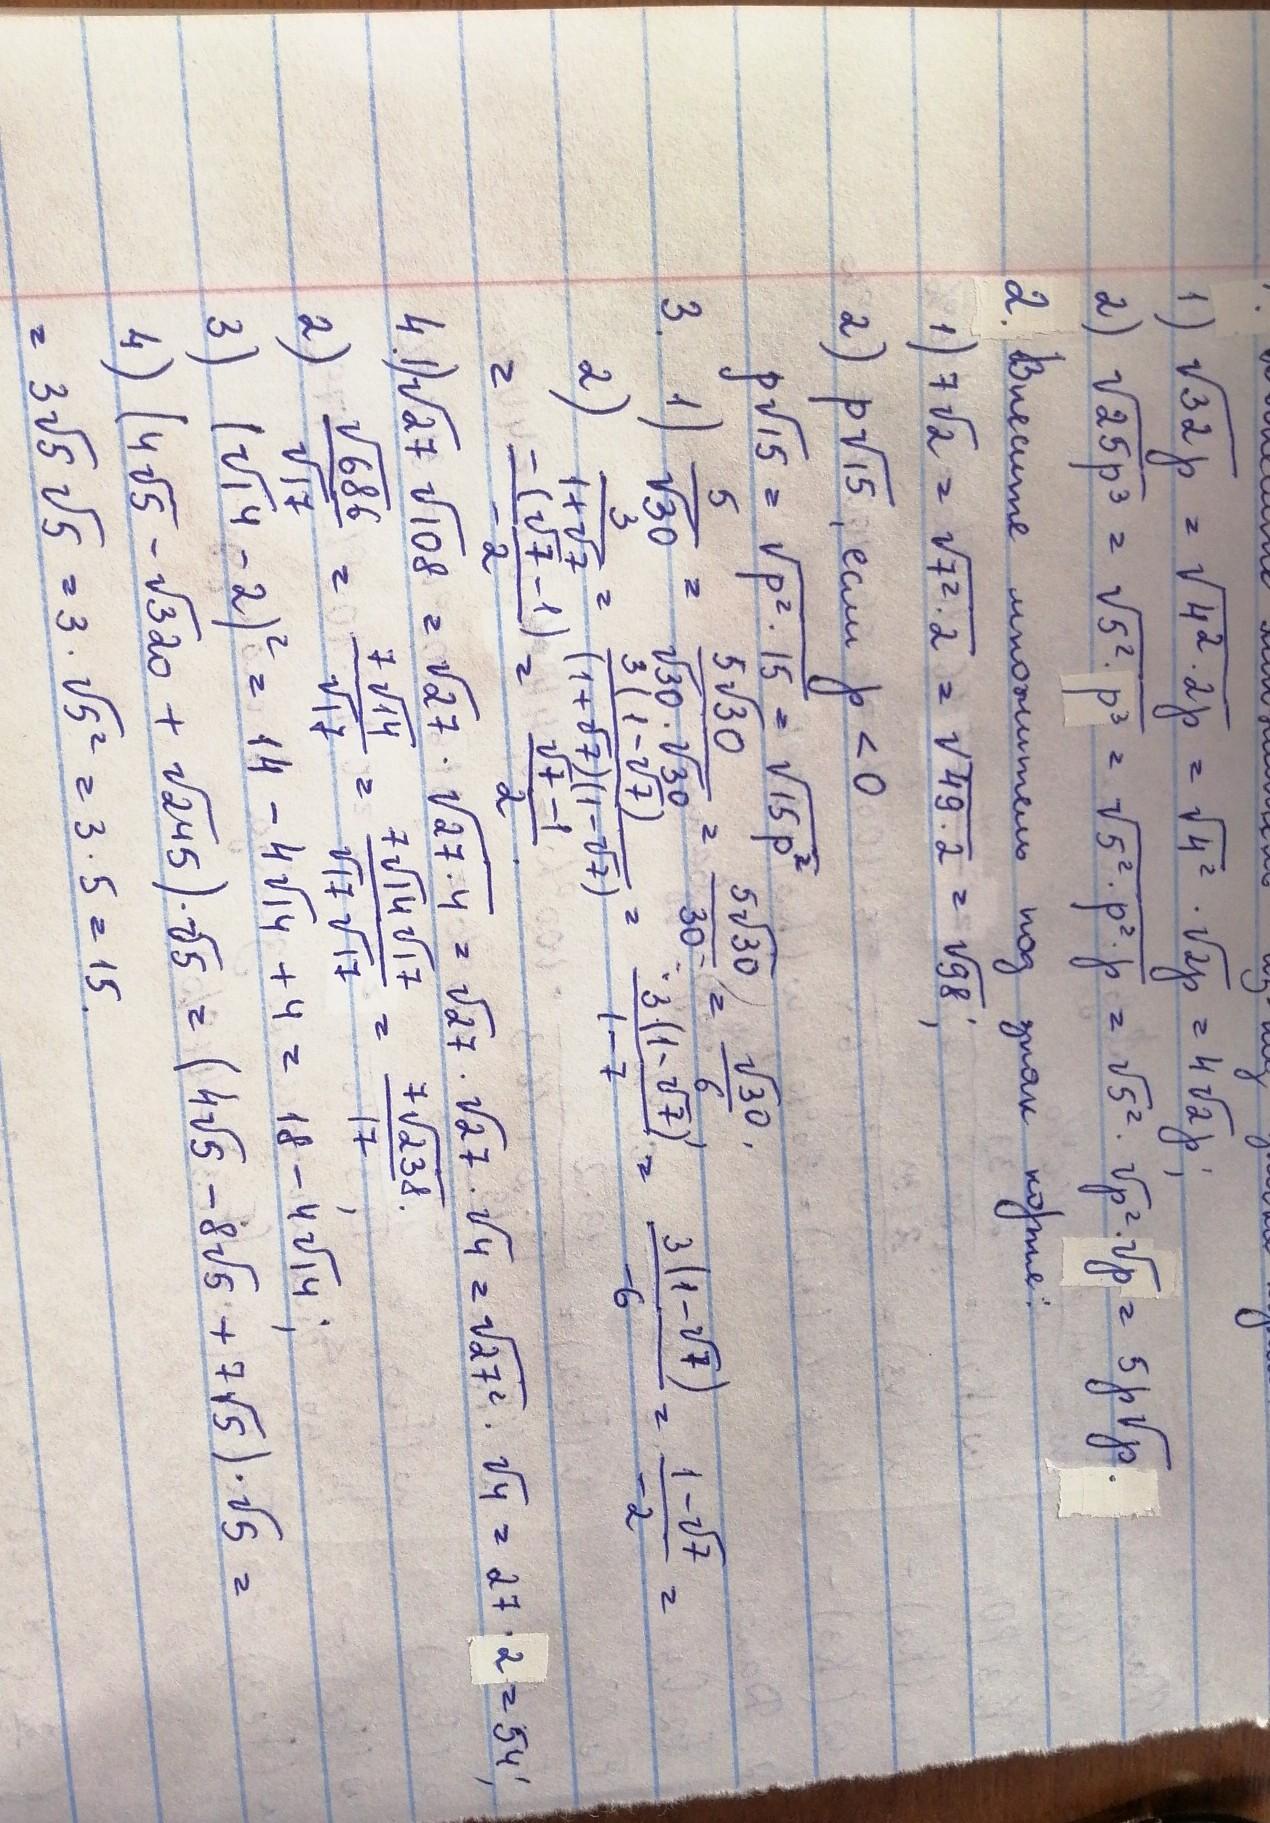 1)  √32p = √4²·2p = √4² · √2p = 4√2p;
2)  √25p³ = √5²·p³ = √5²·p²·p = √5² · √p² · √p = 5p√p.
2. Внесите множитель под знак корня:
1) 7√2 = √7²·2 = √49·2 = √98;
2) p√15, если p < 0
p√15 = √p²·15 = √15p²
3. 1) 5/√30 = 5√30/(√30·√30) = 5√30/30 = √30/6.
2) 3/(1+√7) = 3(1-√7)/((1+√7)(1-√7)) = 3(1-√7)/(1-7) = 3(1-√7)/-6 = (1-√7)/-2 =
= -(√7-1)/-2 = (√7-1)/2.
4. 1) √27 √108 = √27 · √27·4 = √27 · √27 · √4 = √27² · √4 = 27·2 = 54;
2) √686/√17 = 7√14/√17 = 7√14√17/(√17√17) = 7√238/17;
3) (√14 - 2)² = 14 - 4√14 + 4 = 18 - 4√14;
4) (4√5 - √320 + √245)·√5 = (4√5 - 8√5 + 7√5)·√5 =
= 3√5√5 = 3·√5² = 3·5 = 15.